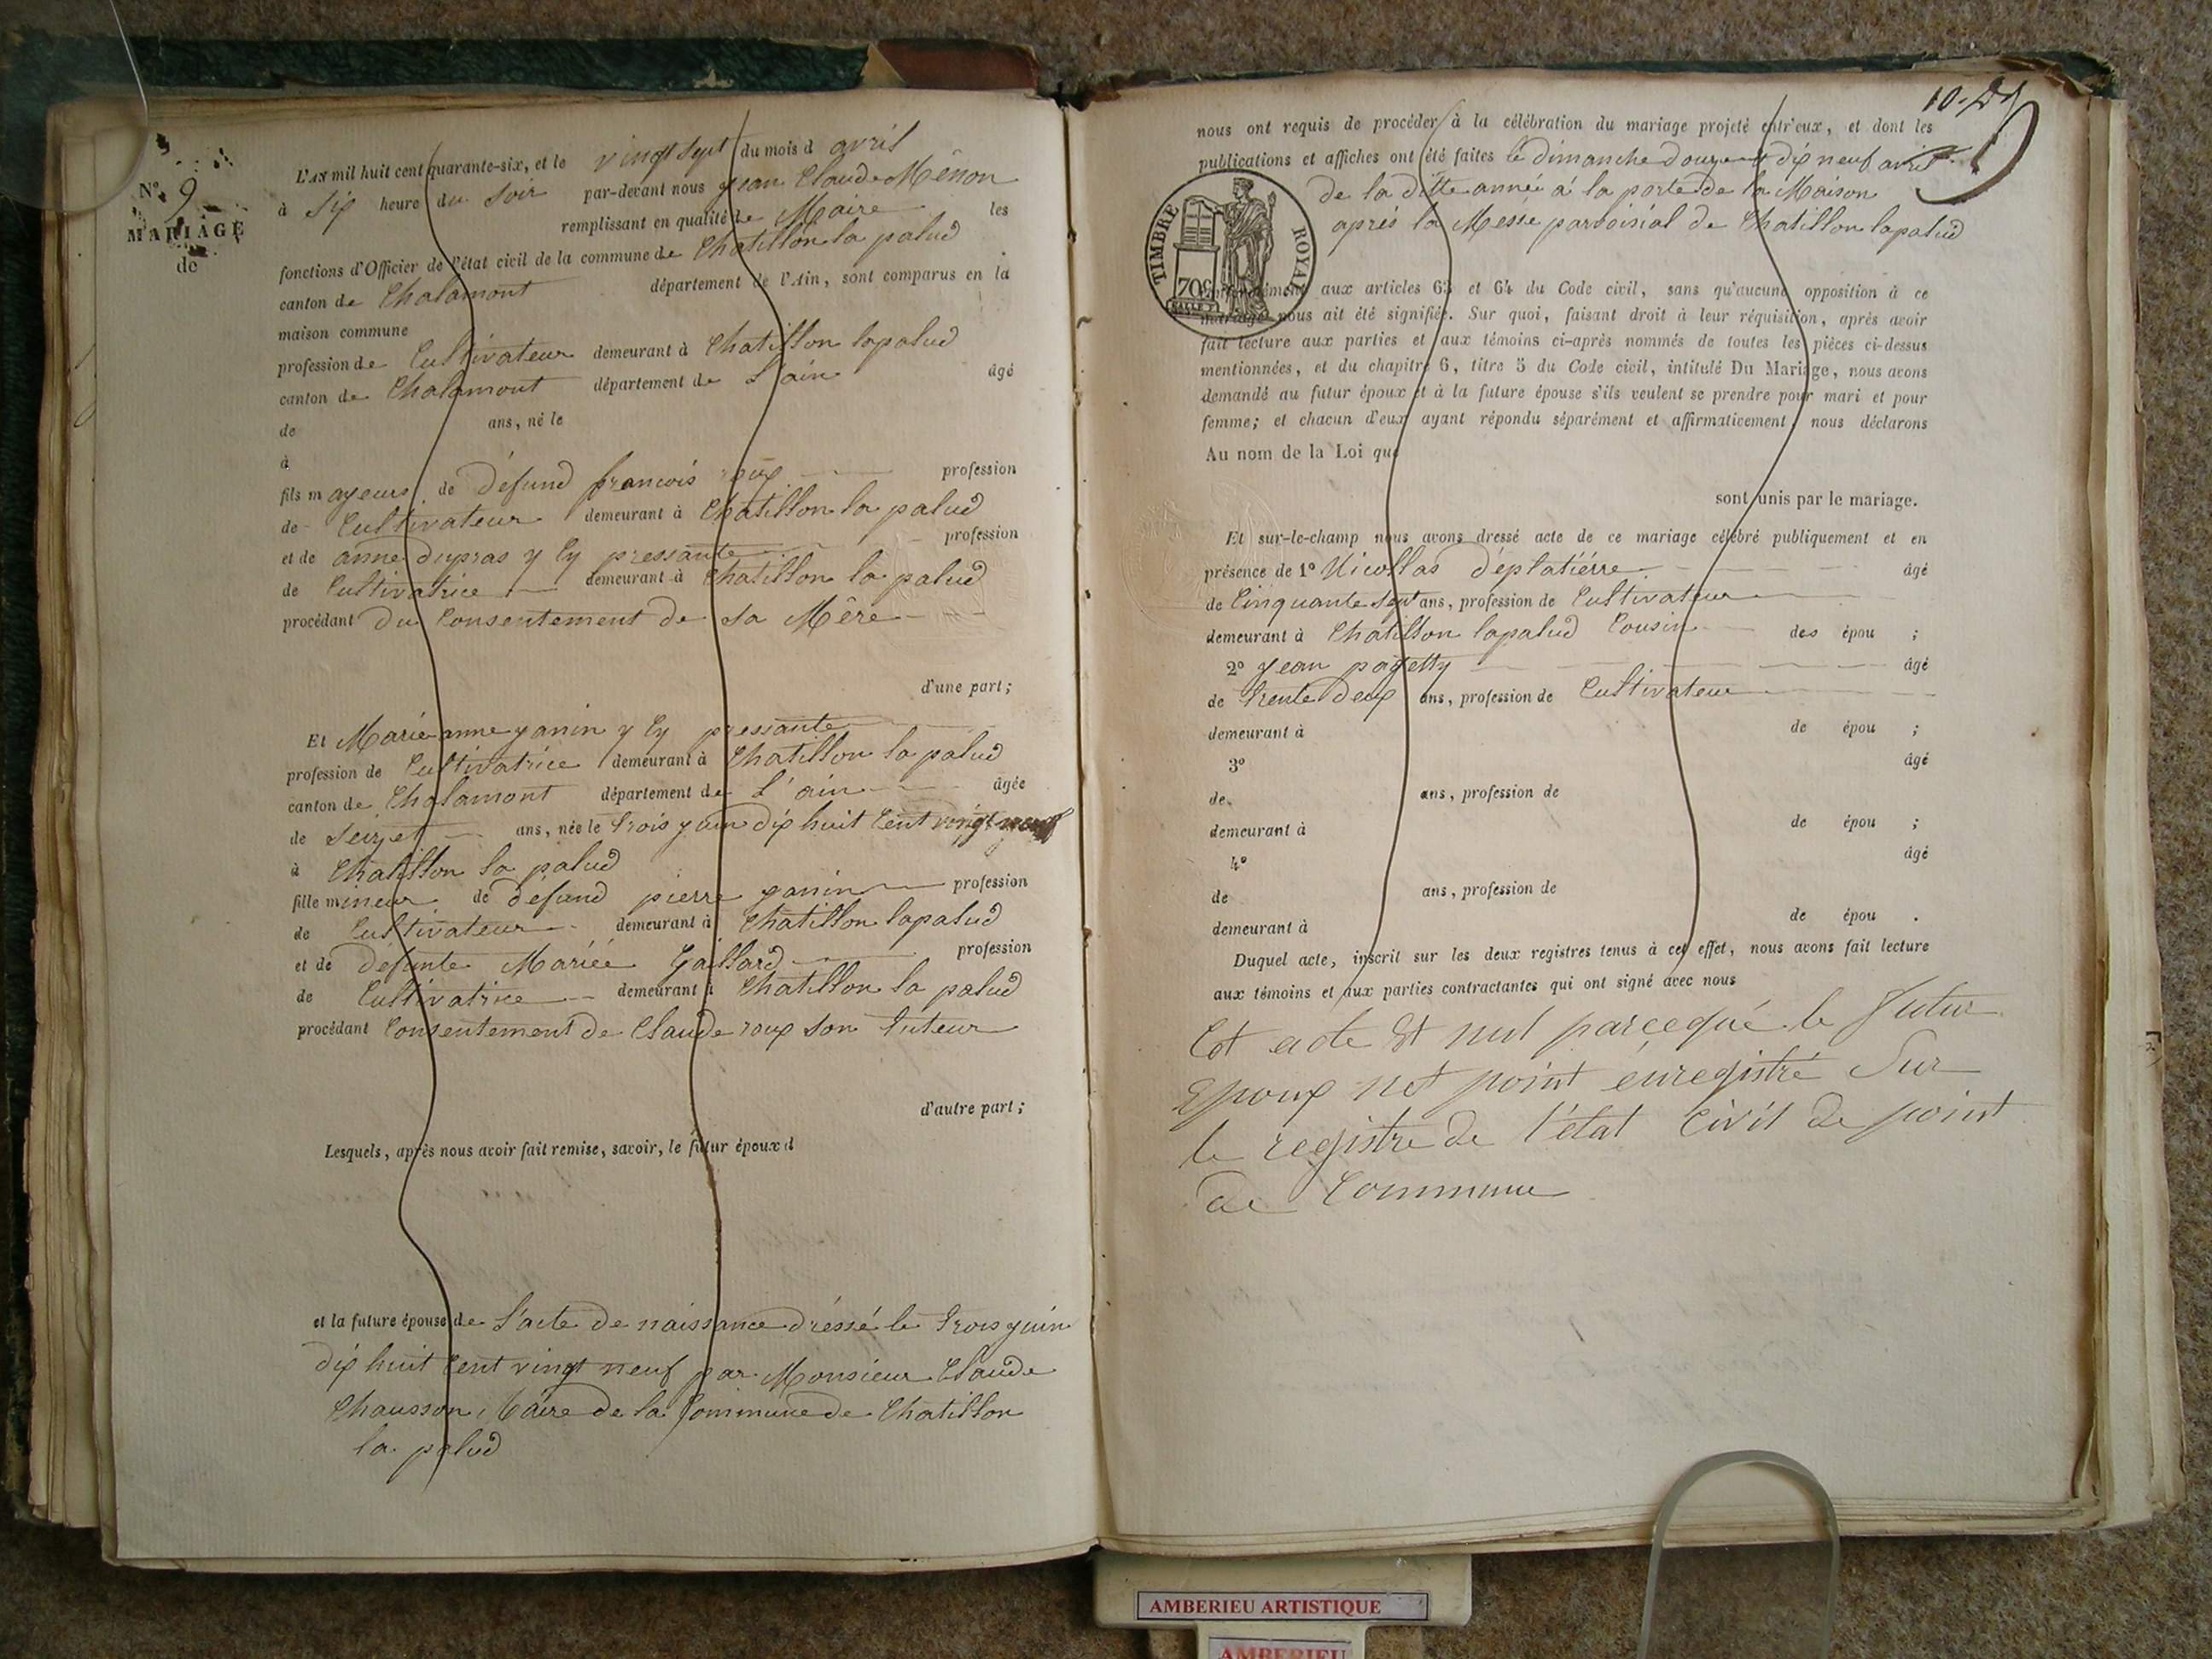 N.º 9
MARIAGE
de
L'AN mil huit cent quarante-six, et le vingt sept du mois d avril
à Six heure du Soir par-devant nous jean Claude Mênon
remplissant en qualité de Maire les
fonctions d'Officier de l'état civil de la commune de Chatillon la palud
canton de Chalamont département de l'Ain, sont comparus en la
maison commune
profession de Cultivateur demeurant à Chatillon lapalud
canton de Chalamont département de L'ain âgé
de ans, né le
à
fils mayeurs de défund francois roux profession
de Cultivateur demeurant à Chatillon la palud
et de anne dupras y Cy pressante profession
de Cultivatrice demeurant à Chatillon la palud
procédant du Consentement de Sa Mêre
d'une part;
Et Marie anne yanin y Cy pressante
profession de Cultivatrice demeurant à Chatillon la palud
canton de Chalamont département de L'ain âgée
de Seizet ans, née le trois yuin dix huit Cent vingt neuf
à Chatillon la palud
fille mineur de défund pierre yanin profession
de Cultivateur demeurant à Chatillon lapalud
et de défunte Mariée Gaillard profession
de Cultivatrice demeurant à Chatillon la palud
procédant Consentement de Claude roux Son tuteur
d'autre part;
Lesquels, après nous avoir fait remise, savoir, le futur époux d
et la future épouse de L'acte de naissance dréssé le trois yuin
dix huit Cent vingt neuf par Monsieur Claude
Chausson Maire de la Commune de Chatillon
la palud
nous ont requis de procéder à la célébration du mariage projeté entr'eux, et dont les
publications et affiches ont été faites le dimanche douze et dix neuf avril
de la ditte année à la porte de la Maison
aprés la Messe paroisial de Chatillon lapalud
TIMBRE ROYAL
70c
aux articles 63 et 64 du Code civil, sans qu'aucune opposition à ce
mariage nous ait été signifiée. Sur quoi, faisant droit à leur réquisition, après avoir
fait lecture aux parties et aux témoins ci-après nommés de toutes les pièces ci-dessus
mentionnées, et du chapitre 6, titre 5 du Code civil, intitulé Du Mariage, nous avons
demandé au futur époux et à la future épouse s'ils veulent se prendre pour mari et pour
femme; et chacun d'eux ayant répondu séparément et affirmativement, nous déclarons
Au nom de la Loi que
sont unis par le mariage.
Et sur-le-champ nous avons dressé acte de ce mariage célébré publiquement et en
présence de 1º Nicollas déplatiérre âgé
de Cinquante Sept ans, profession de Cultivateur
demeurant à Chatillon lapalud Cousin des épou ;
2º yean pagetty âgé
de trente deux ans, profession de Cultivateur
demeurant à de épou ;
3º âgé
de ans, profession de
demeurant à de épou ;
4º âgé
de ans, profession de
demeurant à de épou .
Duquel acte, inscrit sur les deux registres tenus à cet effet, nous avons fait lecture
aux témoins et aux parties contractantes qui ont signé avec nous
Cet acte Et nul parceque le futur
Epoux net point enregistré Sur
le registre de l'état Civil de point
de Commune
AMBERIEU ARTISTIQUE
AMBERIEU